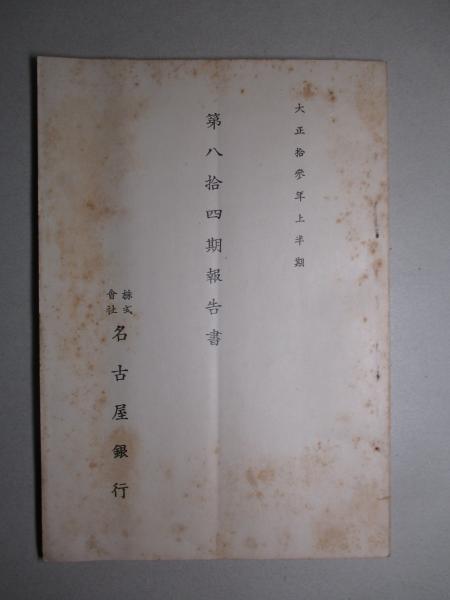 大正拾參年上半期
第八拾四期報告書
株式會社名古屋銀行